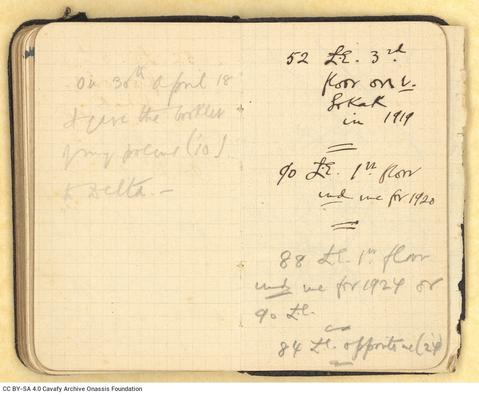 On 30th April 18
I gave the booklet
of my poems (10)
to Delta. —
52 £E. 3rd
floor on
in 1919
90 £E. 1st floor
me for 1920
88 £E. 1st floor
me for 1924 or
90 £E.
84 £E. opposite me (24)
CC BY-SA 4.0 Cavafy Archive Onassis Foundation